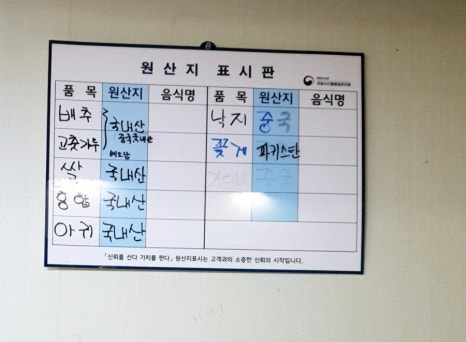 원산지 표시판
품 목 원산지 음식명 품 목 원산지 음식명
배추 국내산 낙지 중국
고춧가루 중국국내산 꽃게 파키스탄
베트남
쌀 국내산 중국
홍합 국내산
아귀 국내산
「신뢰를 산다 가치를 판다」 원산지표시는 고객과의 소중한 신뢰의 시작입니다.